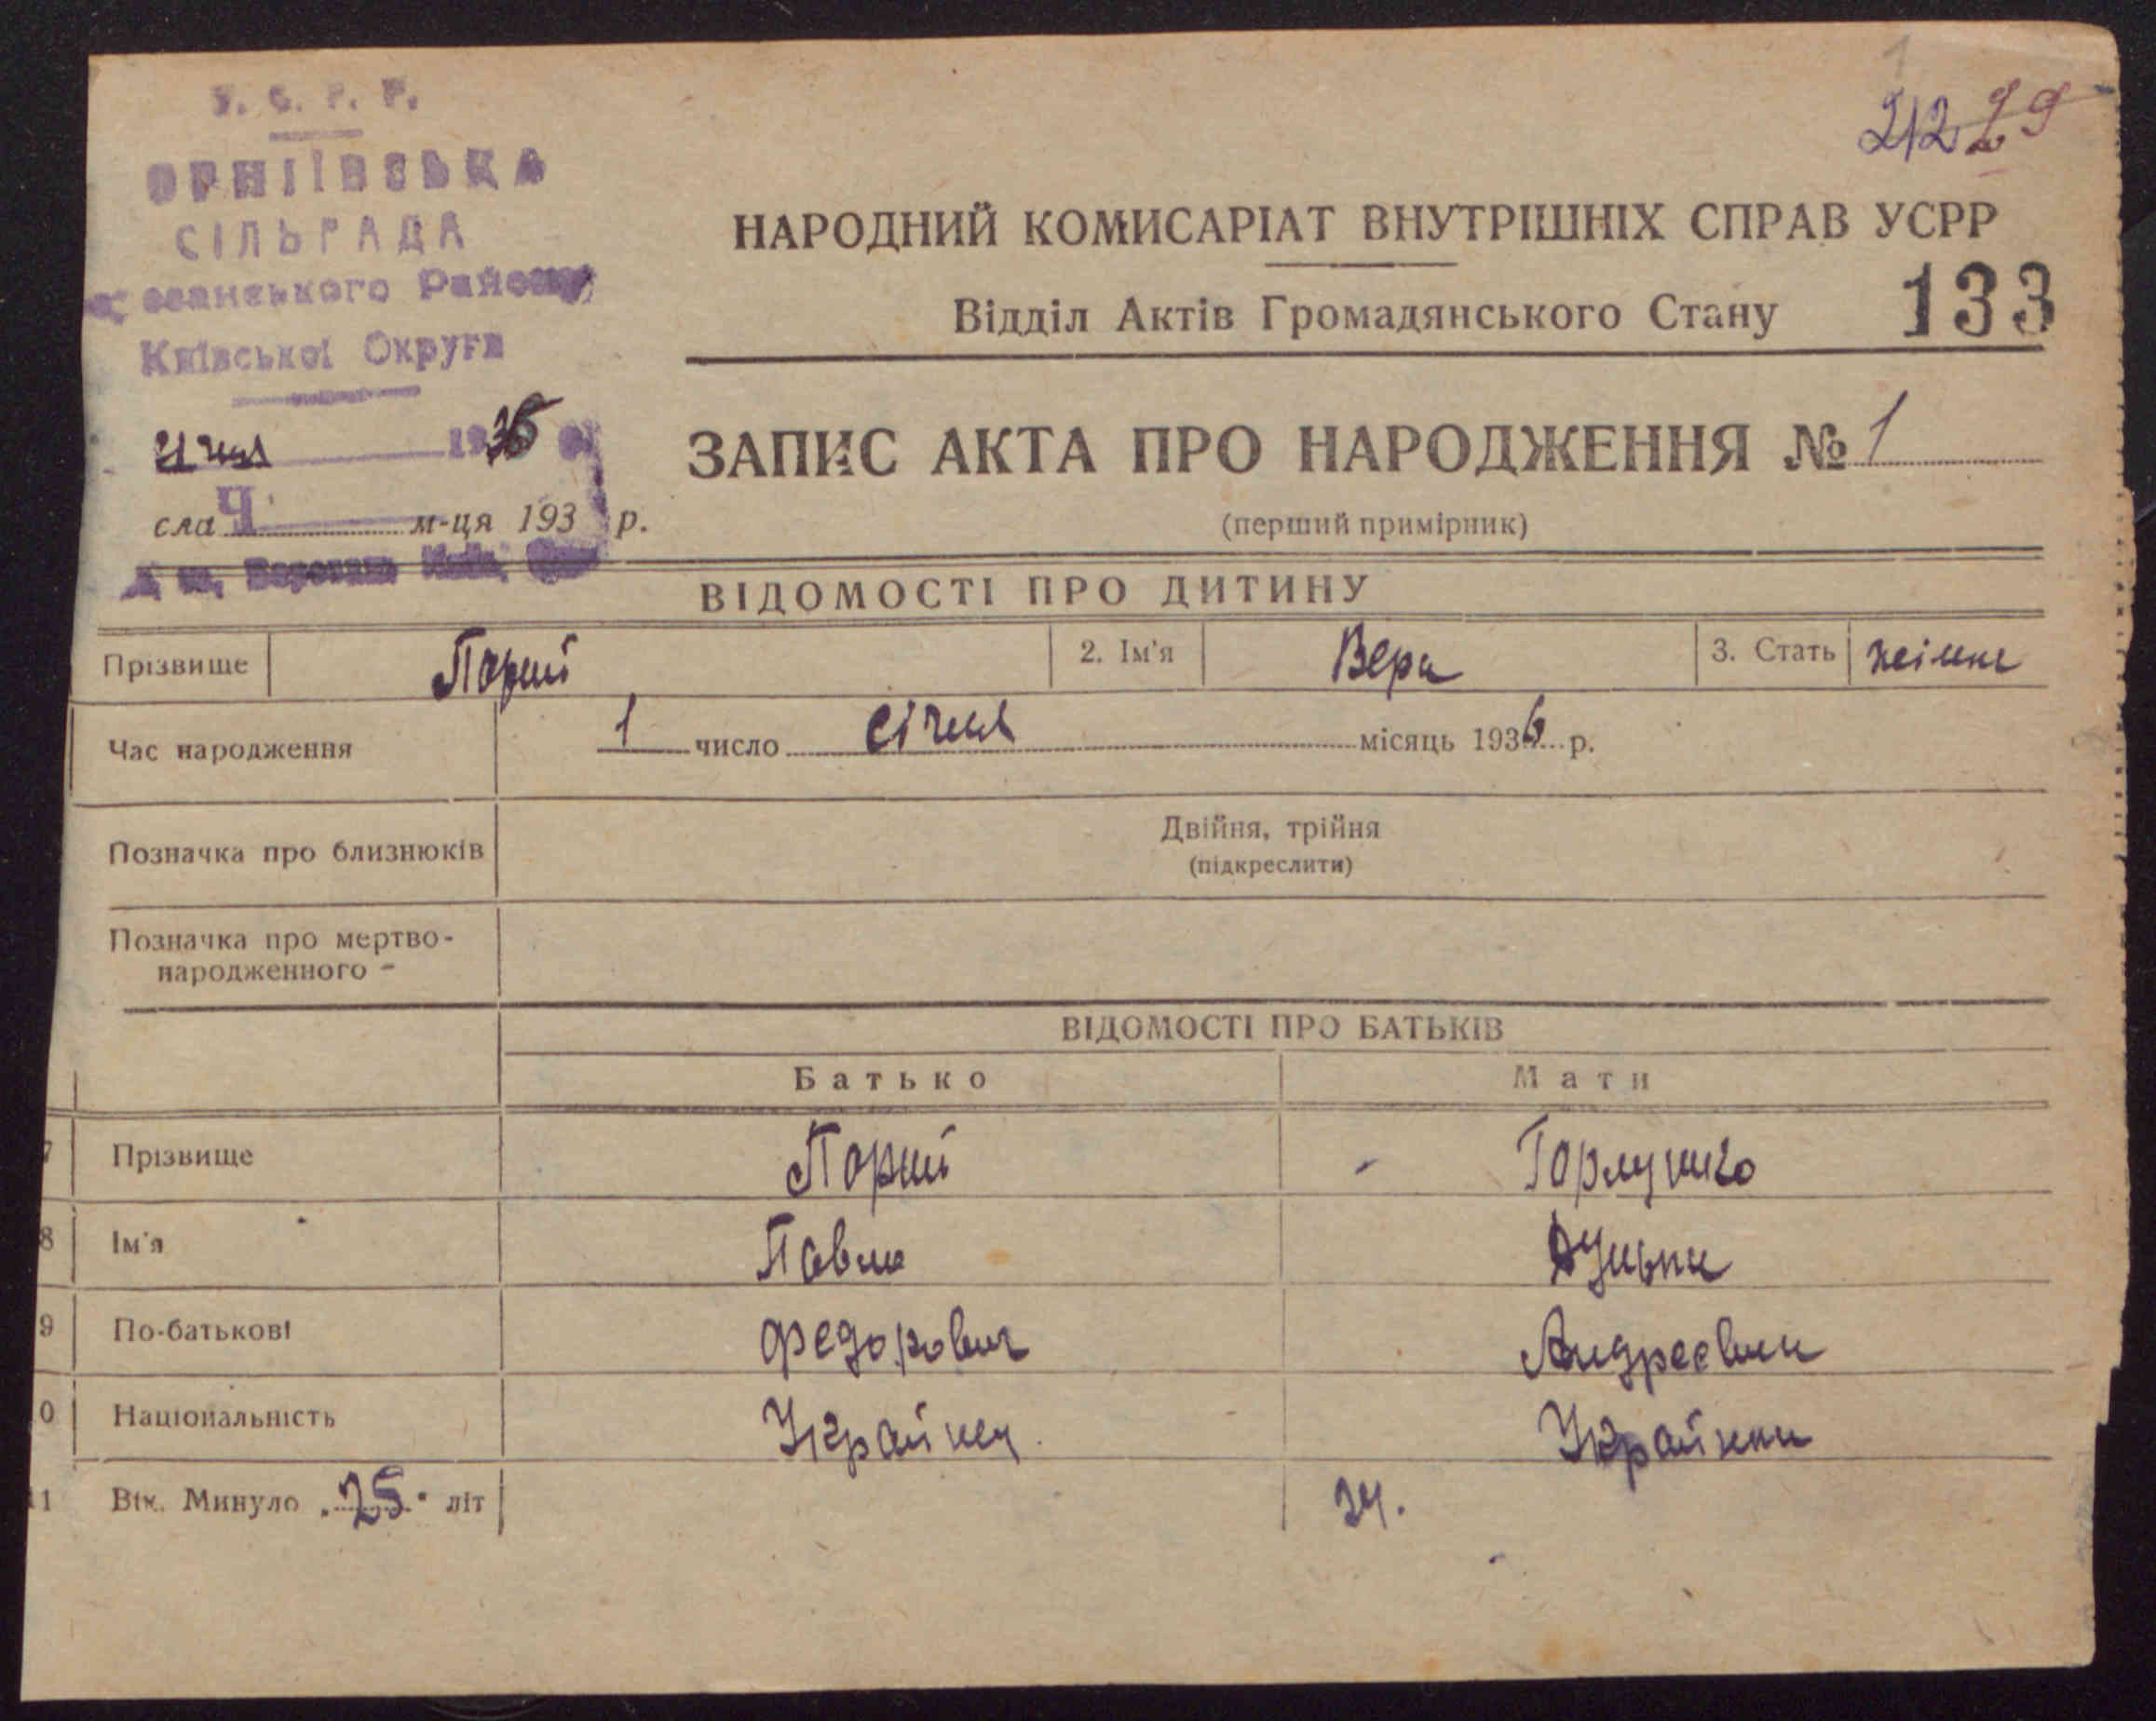 У. С. Р. Р.
СІЛЬРАДА
Району
Київської Округи
січня 1936
сла 4 м-ця 193 р.
212 29
НАРОДНИЙ КОМИСАРІАТ ВНУТРІШНІХ СПРАВ УСРР
Відділ Актів Громадянського Стану 133
ЗАПИС АКТА ПРО НАРОДЖЕННЯ № 1
(перший примірник)
ВІДОМОСТІ ПРО ДИТИНУ
Прізвище Порий 2. Ім'я Вера 3. Стать
Час народження 1 число січня місяць 1936 р.
Позначка про близнюків Двійня, трійня
(підкреслити)
Позначка про мертво-
народженного -
ВІДОМОСТІ ПРО БАТЬКІВ
Батько Мати
7 Прізвище Порий Горлушко
8 Ім'я Павло
9 По-батькові Федорович Андреевна
0 Національність Украйнец Украйнка
11 Вік. Минуло 25 літ 24.